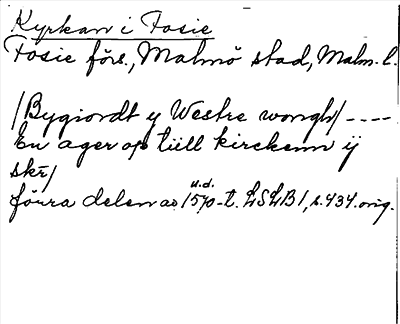 Kyrkan i Fosie
Fosie förs., Malmö stad, Malm. l.
/Bygiordt y Westre wongh/ ----
En ager op till kirckenn ÿ
skr/
förra delen av u.d. 1570-t. LSLB1, s.434.orig.